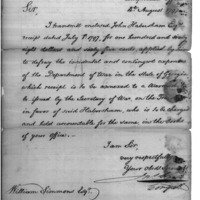 Sir,
2d August
I transmit enclosed John Habersham Esqrs
receipt dated July 1st 1797, for one hundred and twenty
eight dollars and sixty five cents, applied by him
to defray the incidental and contingent expenses
of the Department of War in the State of Georgia
which receipt is to be annexed to a Warrant
to be issued by the Secretary of War, on the Treasury
in favor of said Habersham, who is to be charged
and held accountable for the same, in the books
of your office.
I am Sir,
very respectfully
Your obed.
William Simmons Esqr.